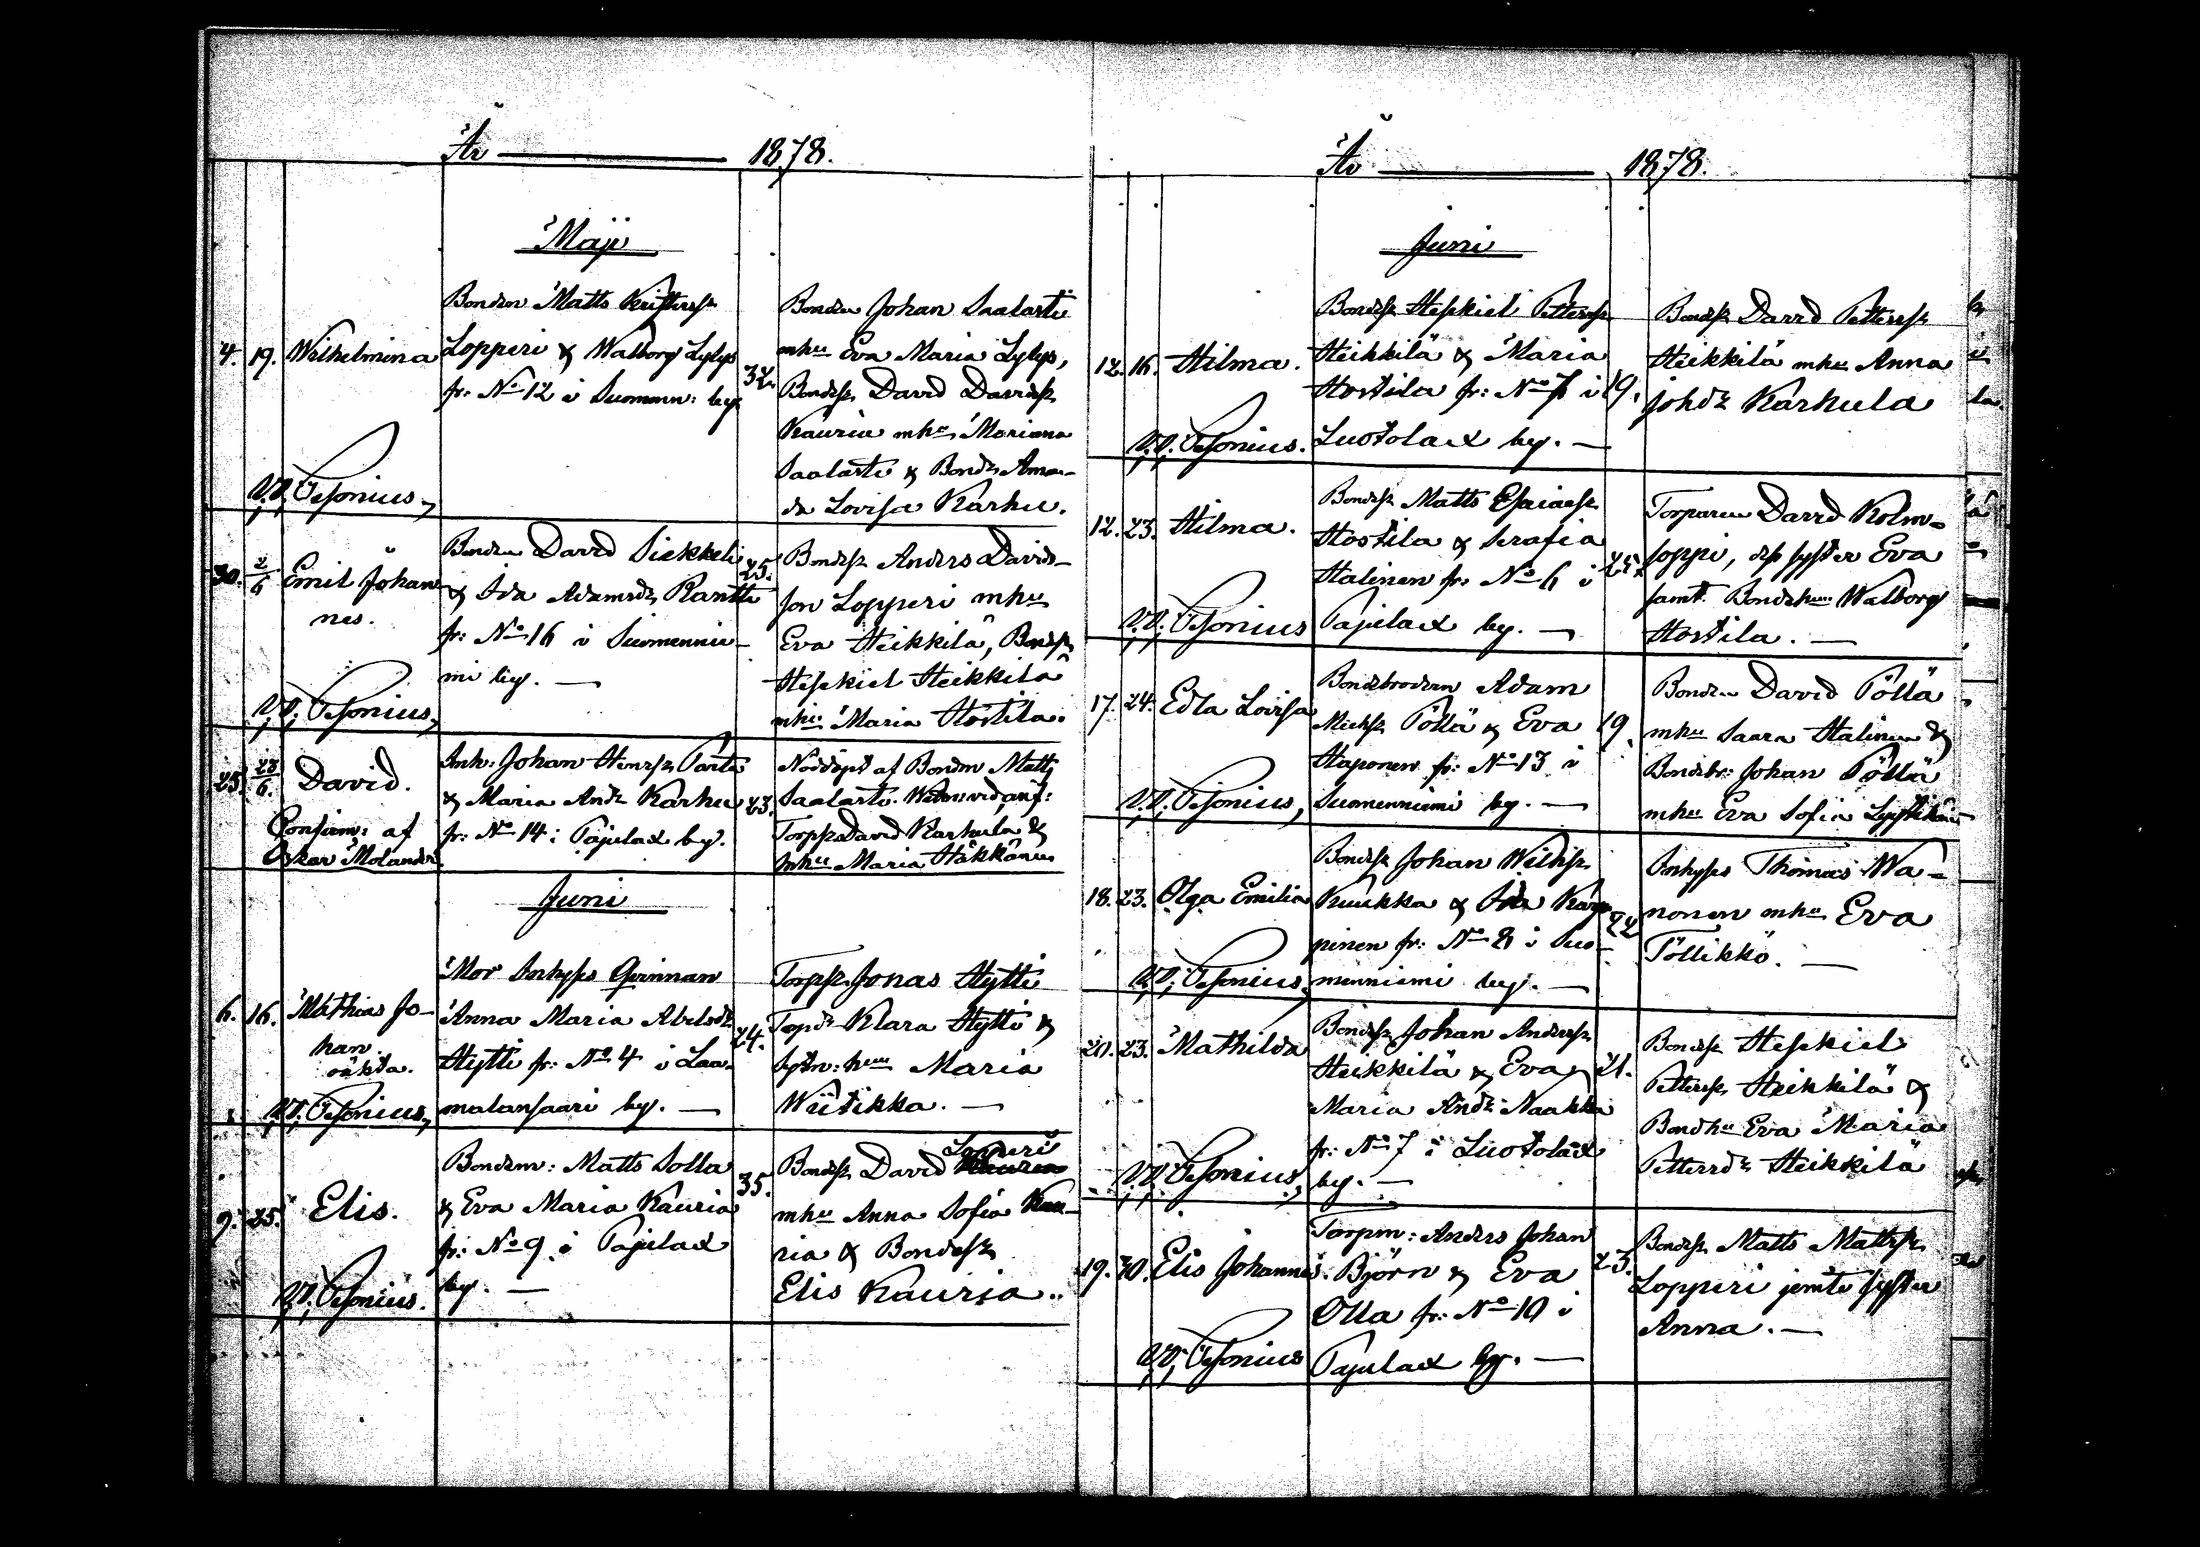 År 1878.
Maji
4. 19. Wilhelmina
V.V. Tesonius,
Bonden Matts Kristerss
Lopperi & Walborg Lylys
fr. No 12 i Suomenn: by.
32.
Bonden Johan Saalasti
mhu Eva Maria Lylys,
Bondess David Davidss
Kauria mhu Mariana
Saalasti & Bondd Aman-
da Lovisa Karhu.
30. 2/6 Emil Johan
nes.
V.V. Tesonius,
Bonden David Siekkeli
& Ida Adamsdr Rantti
fr: No 16 i Suomennie-
mi by. —
25.
Bondess Anders Davids-
son Lopperi mhu
Eva Heikkilä, Bondss
Heskiel Heikkilä
mhu Maria Hostila.
25. 23/6. David.
Confirm: af
Oskar Molander
Inh: Johan Henrss Partti
& Maria Andr Karhu
fr: No 14 i Pajulax by.
23.
Nöddöpt af Bonden Matts
Saalasti. Wittn: vid anf:
Torpps David Karhula &
mhu Maria Häkkänen
Juni
6. 16. Mathias Jo-
han.
oäkta.
V.V. Tesonius,
Mor Inhyss Qvinnan
Anna Maria Abelsdr
Hytti fr: No 4 i Laa-
malansaari by. —
24.
Torpss Jonas Hytti
Torpdr Klara Hytti &
Maria
Wiitikka. —
9. 25. Elis.
V.V. Tesonius.
Bondem: Matts Solla
& Eva Maria Kauria
fr: No 9 i Pajulax
by. —
35.
Bondess David Lopperi
mhu Anna Sofia Kau-
ria & Bondess
Elis Kauria..
År 1878.
Juni
12. 16. Hilma.
V.V. Tesonius.
Bondss Heskiel Petterss
Heikkilä & Maria
Hostila fr: No 7 i
Luotolax by. —
19.
Bondss David Petterss
Heikkilä mhu Anna
Johdr Karhula
12. 23. Hilma.
V.V. Tesonius
Bondess Matts Esaiass
Hostila & Serafia
Halinen fr: No 6 i
Pajulax by. —
25.
Torparen David Kolm-
soppi, dss syster Eva
samt Bondehu Walborg
Hostila. —
17. 24. Edla Lovisa
V.V. Tesonius,
Bondebrodern Adam
Mickss Pöllä & Eva
Haponen fr: No 13 i
Suomenniemi by. —
19.
Bonden David Pöllä
mhu Saara Halinen &
Bondebr: Johan Pöllä
mhu Eva Sofia
18. 23. Olga Emilia
V.V. Tesonius,
Bondess Johan Wilhss
Kuukka & Ida Karp-
pinen fr: No 8 i Suo-
menniemi by. —
22
Inhyss Thomas Wa-
nonen mhu Eva
Töllikkö. —
20. 23. Mathilda
V.V. Tesonius,
Bondess Johan Anderss
Heikkilä & Eva
Maria Andr Naakka
fr: No 7 i Luotolax
by. —
21.
Bondess Heskiel
Petterss Heikkilä &
Bondhu Eva Maria
Pettersdr Heikkilä
19. 30. Elis Johannes.
V.V. Tesonius
Torpm: Anders Johan
Björn & Eva
Olla fr: No 10 i
Pajulax by. —
23.
Bondess Matts Mattss
Lopperi jemte syster
Anna. —